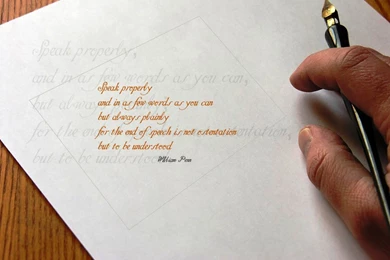 Speak properly,
and in as few words as you can,
but always
for the end
but to be understood
Speak properly
and in as few words as you can
but always plainly
for the end of speech is not ostentation
but to be understood
William Penn